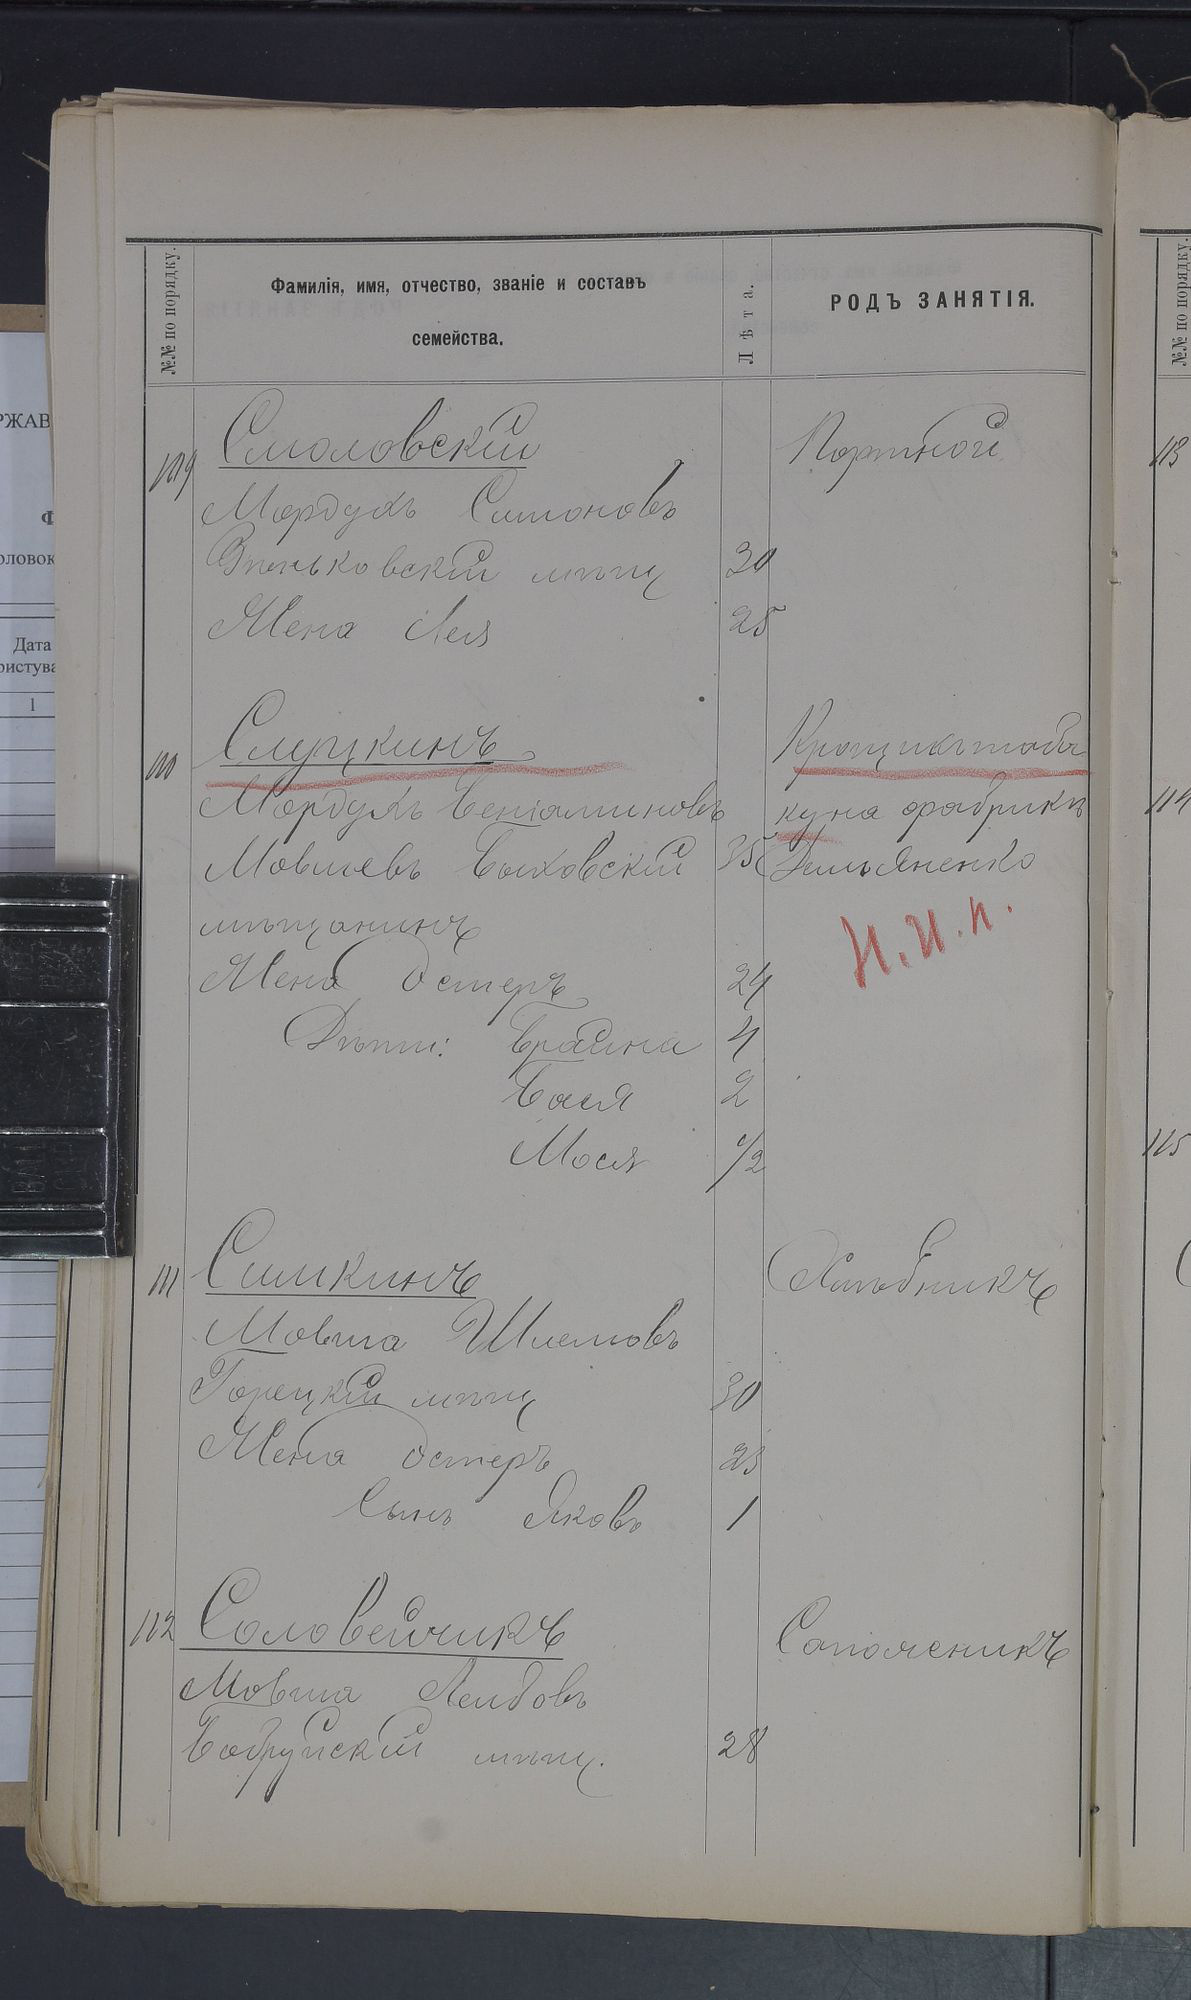 №№ по порядку.
Фамилія, имя, отчество, званіе и составъ
семейства.
Лѣта.
РОДЪ ЗАНЯТІЯ.
Смоловский Портной
Мордухъ Симоновъ
Зѣньковский мѣщ 30
Жена Лея 25
110 Слуцкинъ Крощикъ таба
Мордухъ Беніаминовъ ку на фабрикѣ
Мовшевъ Быховский 35
мѣщанинъ
Н.И.п.
Жена Эстеръ 24
Дѣти: Брайна 4
Бася 2
Мося 1/2
111 Симкинъ Хлѣбникъ
Мовша Шлемовъ
Горецкий мѣщ 30
Жена Эстеръ 23
Сынъ Яковъ 1
112 Соловейчикъ Сапожникъ
Мовша Лейбовъ
Бобруйский мѣщ. 28
№№ по порядку.
113
114
115
РЖАВ
Ф
оловок
Дата
ристува
1